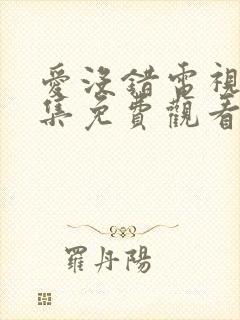 愛沒錯電視
集免費觀看
羅丹陽